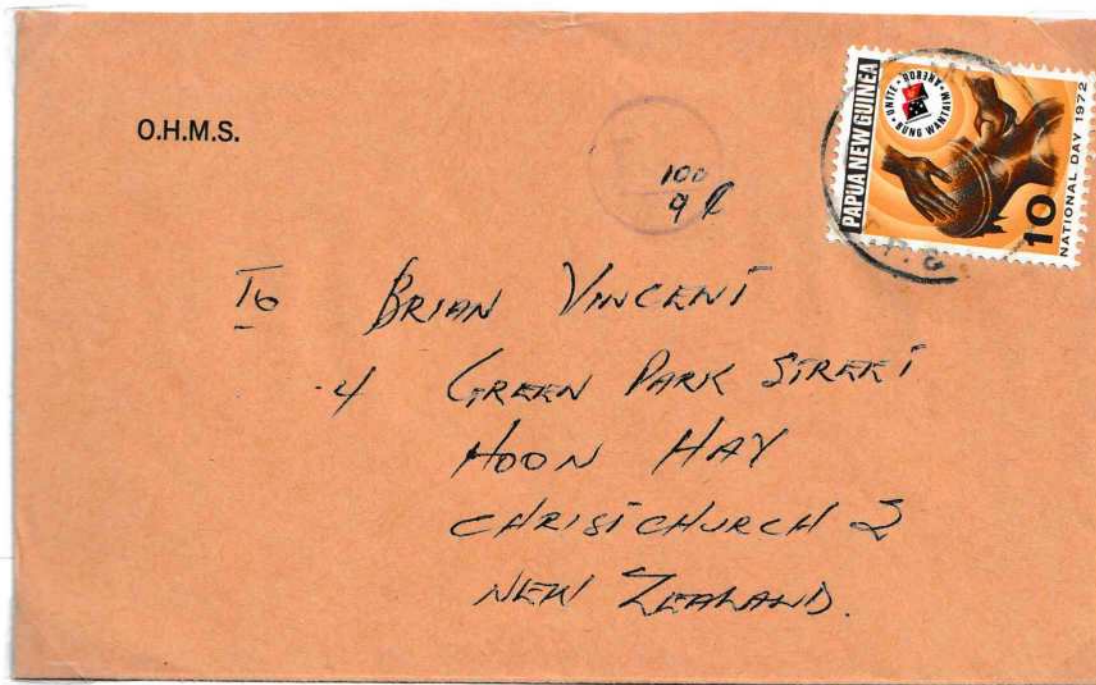 O.H.M.S.
PAPUA NEW GUINEA
UNITE · BUNG WANTAIM ·
10
NATIONAL DAY 1972
100
9
To BRIAN VINCENT
4 GREEN PARK STREET
HOON HAY
CHRISTCHURCH 2
NEW ZEALAND.